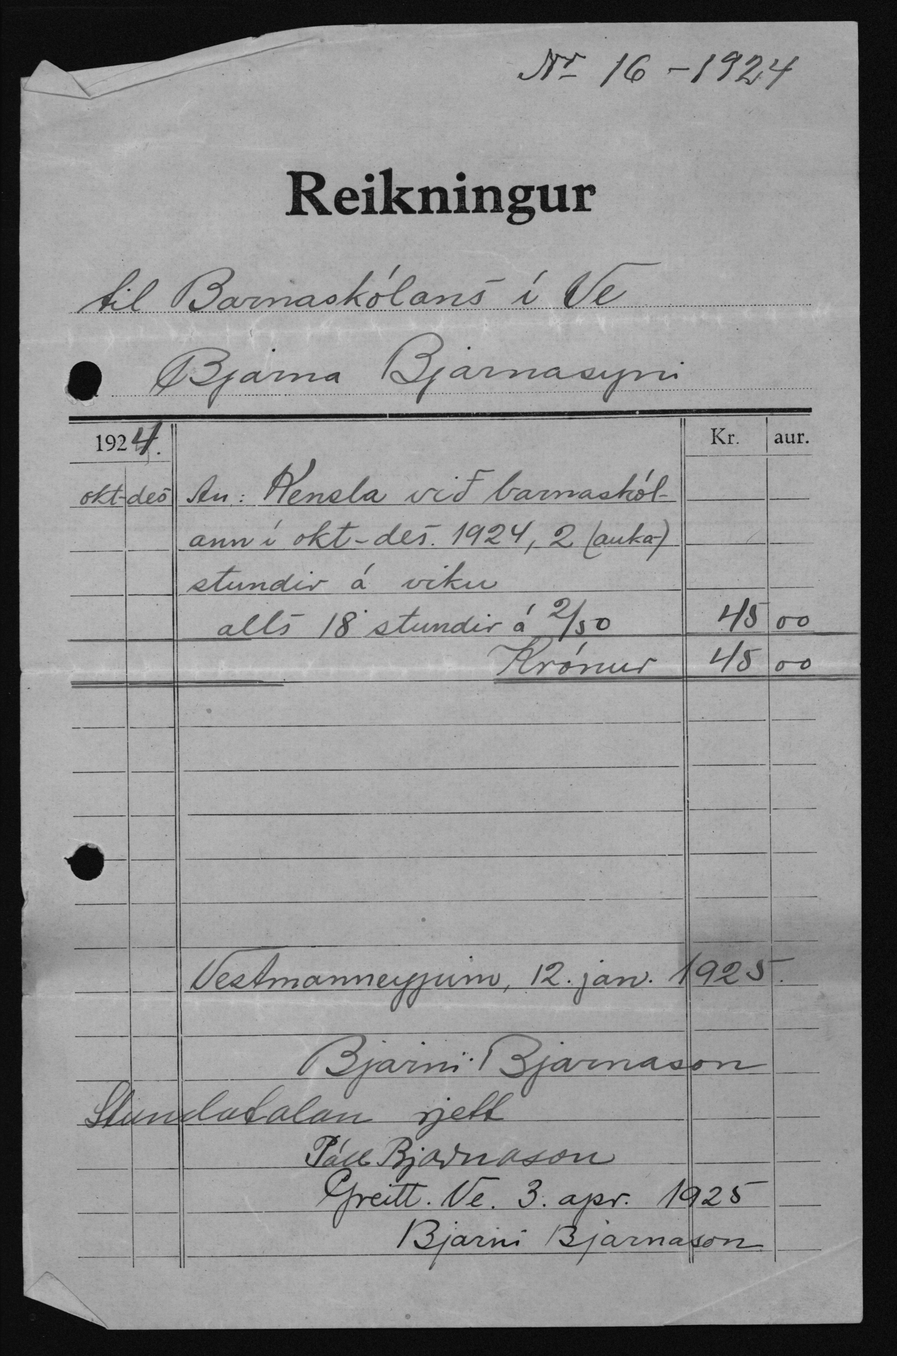 Nr 16 - 1924
Reikningur
til Barnaskólans í Ve
Bjarna Bjarnasyni
1924. Kr. aur.
okt-des An: Kensla við barnaskól-
ann í okt-des. 1924, 2 (auka-)
stundir á viku
alls 18 stundir á 2/50 45 00
Krónur 45 00
Vestmanneyjum, 12. jan. 1925.
Bjarni Bjarnason
Stundatalan rjett
Páll Bjarnason
Greitt. Ve. 3. apr. 1925
Bjarni Bjarnason